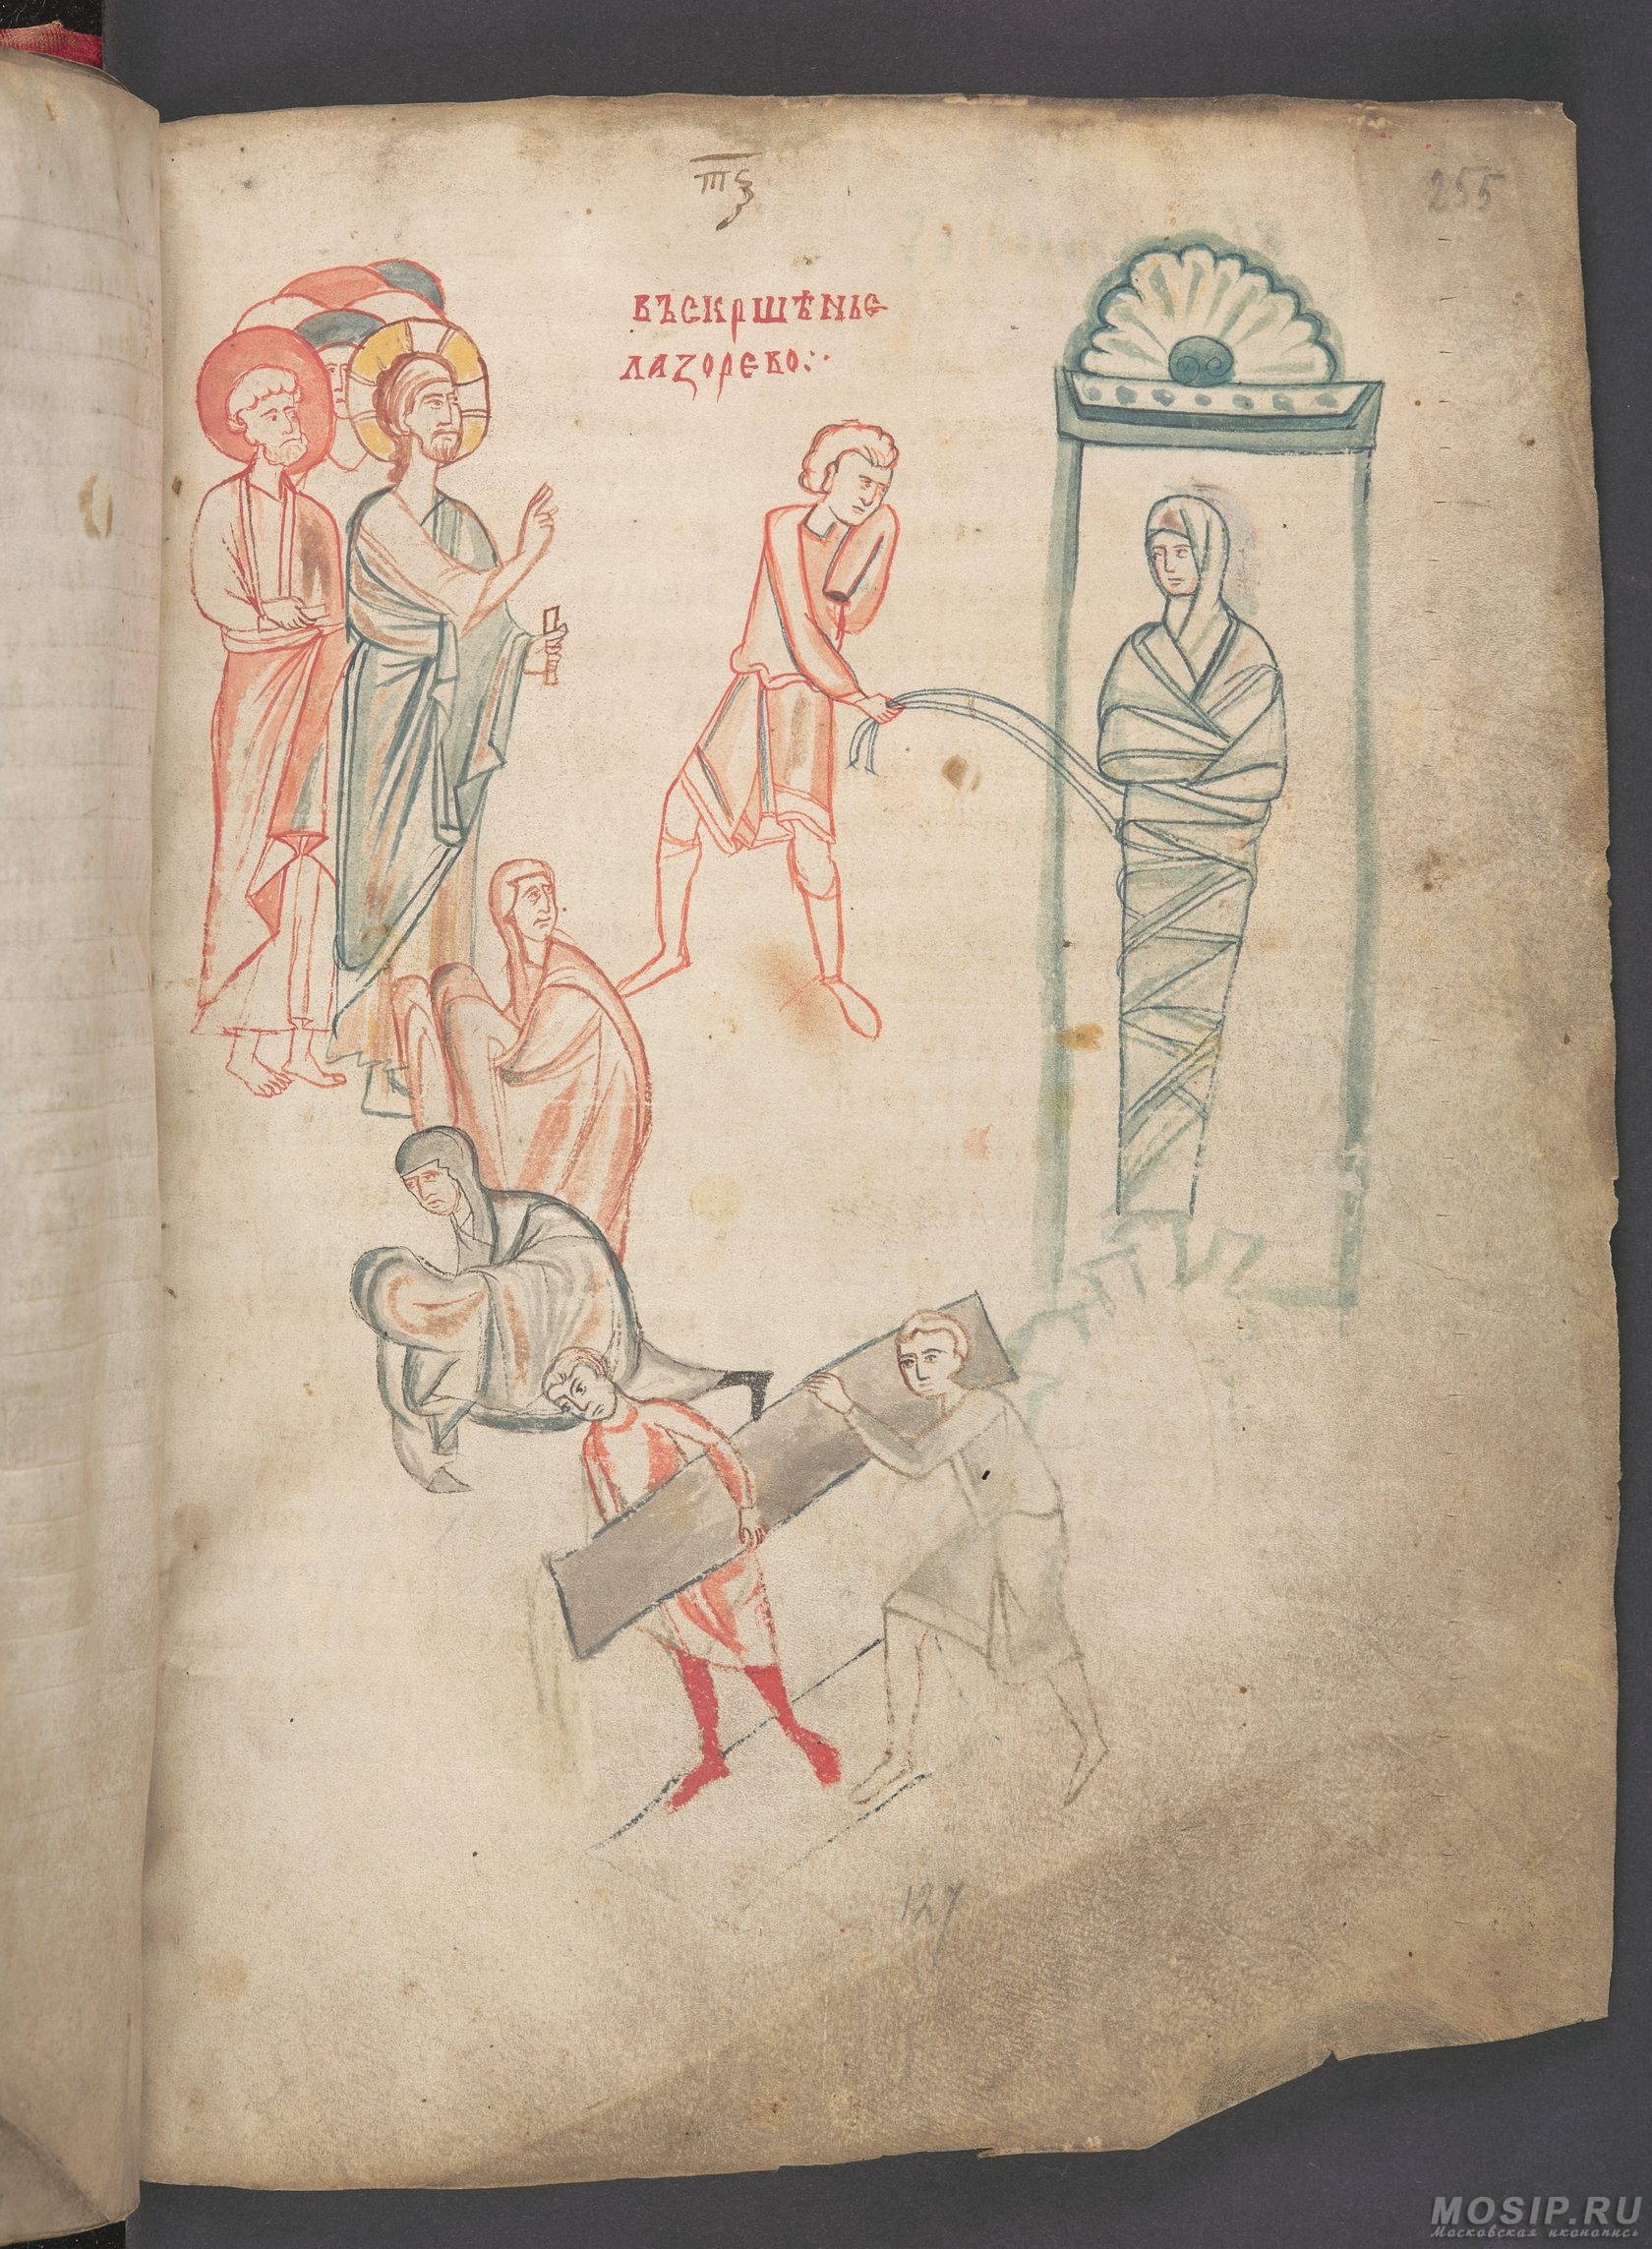 т҃ѯ
255
въскршѣньє
лазорево:·
127
MOSIP.RU
Московская иконопись